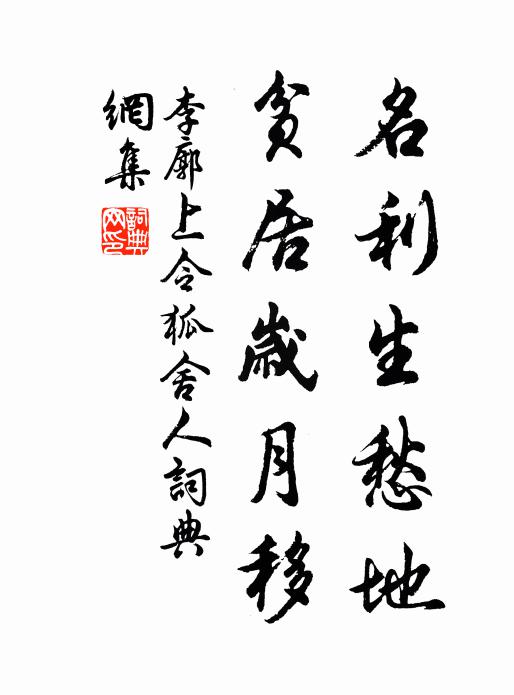 名利生愁地
貧居歲月移
李廓上令狐舍人詞典
網集
詞典網印